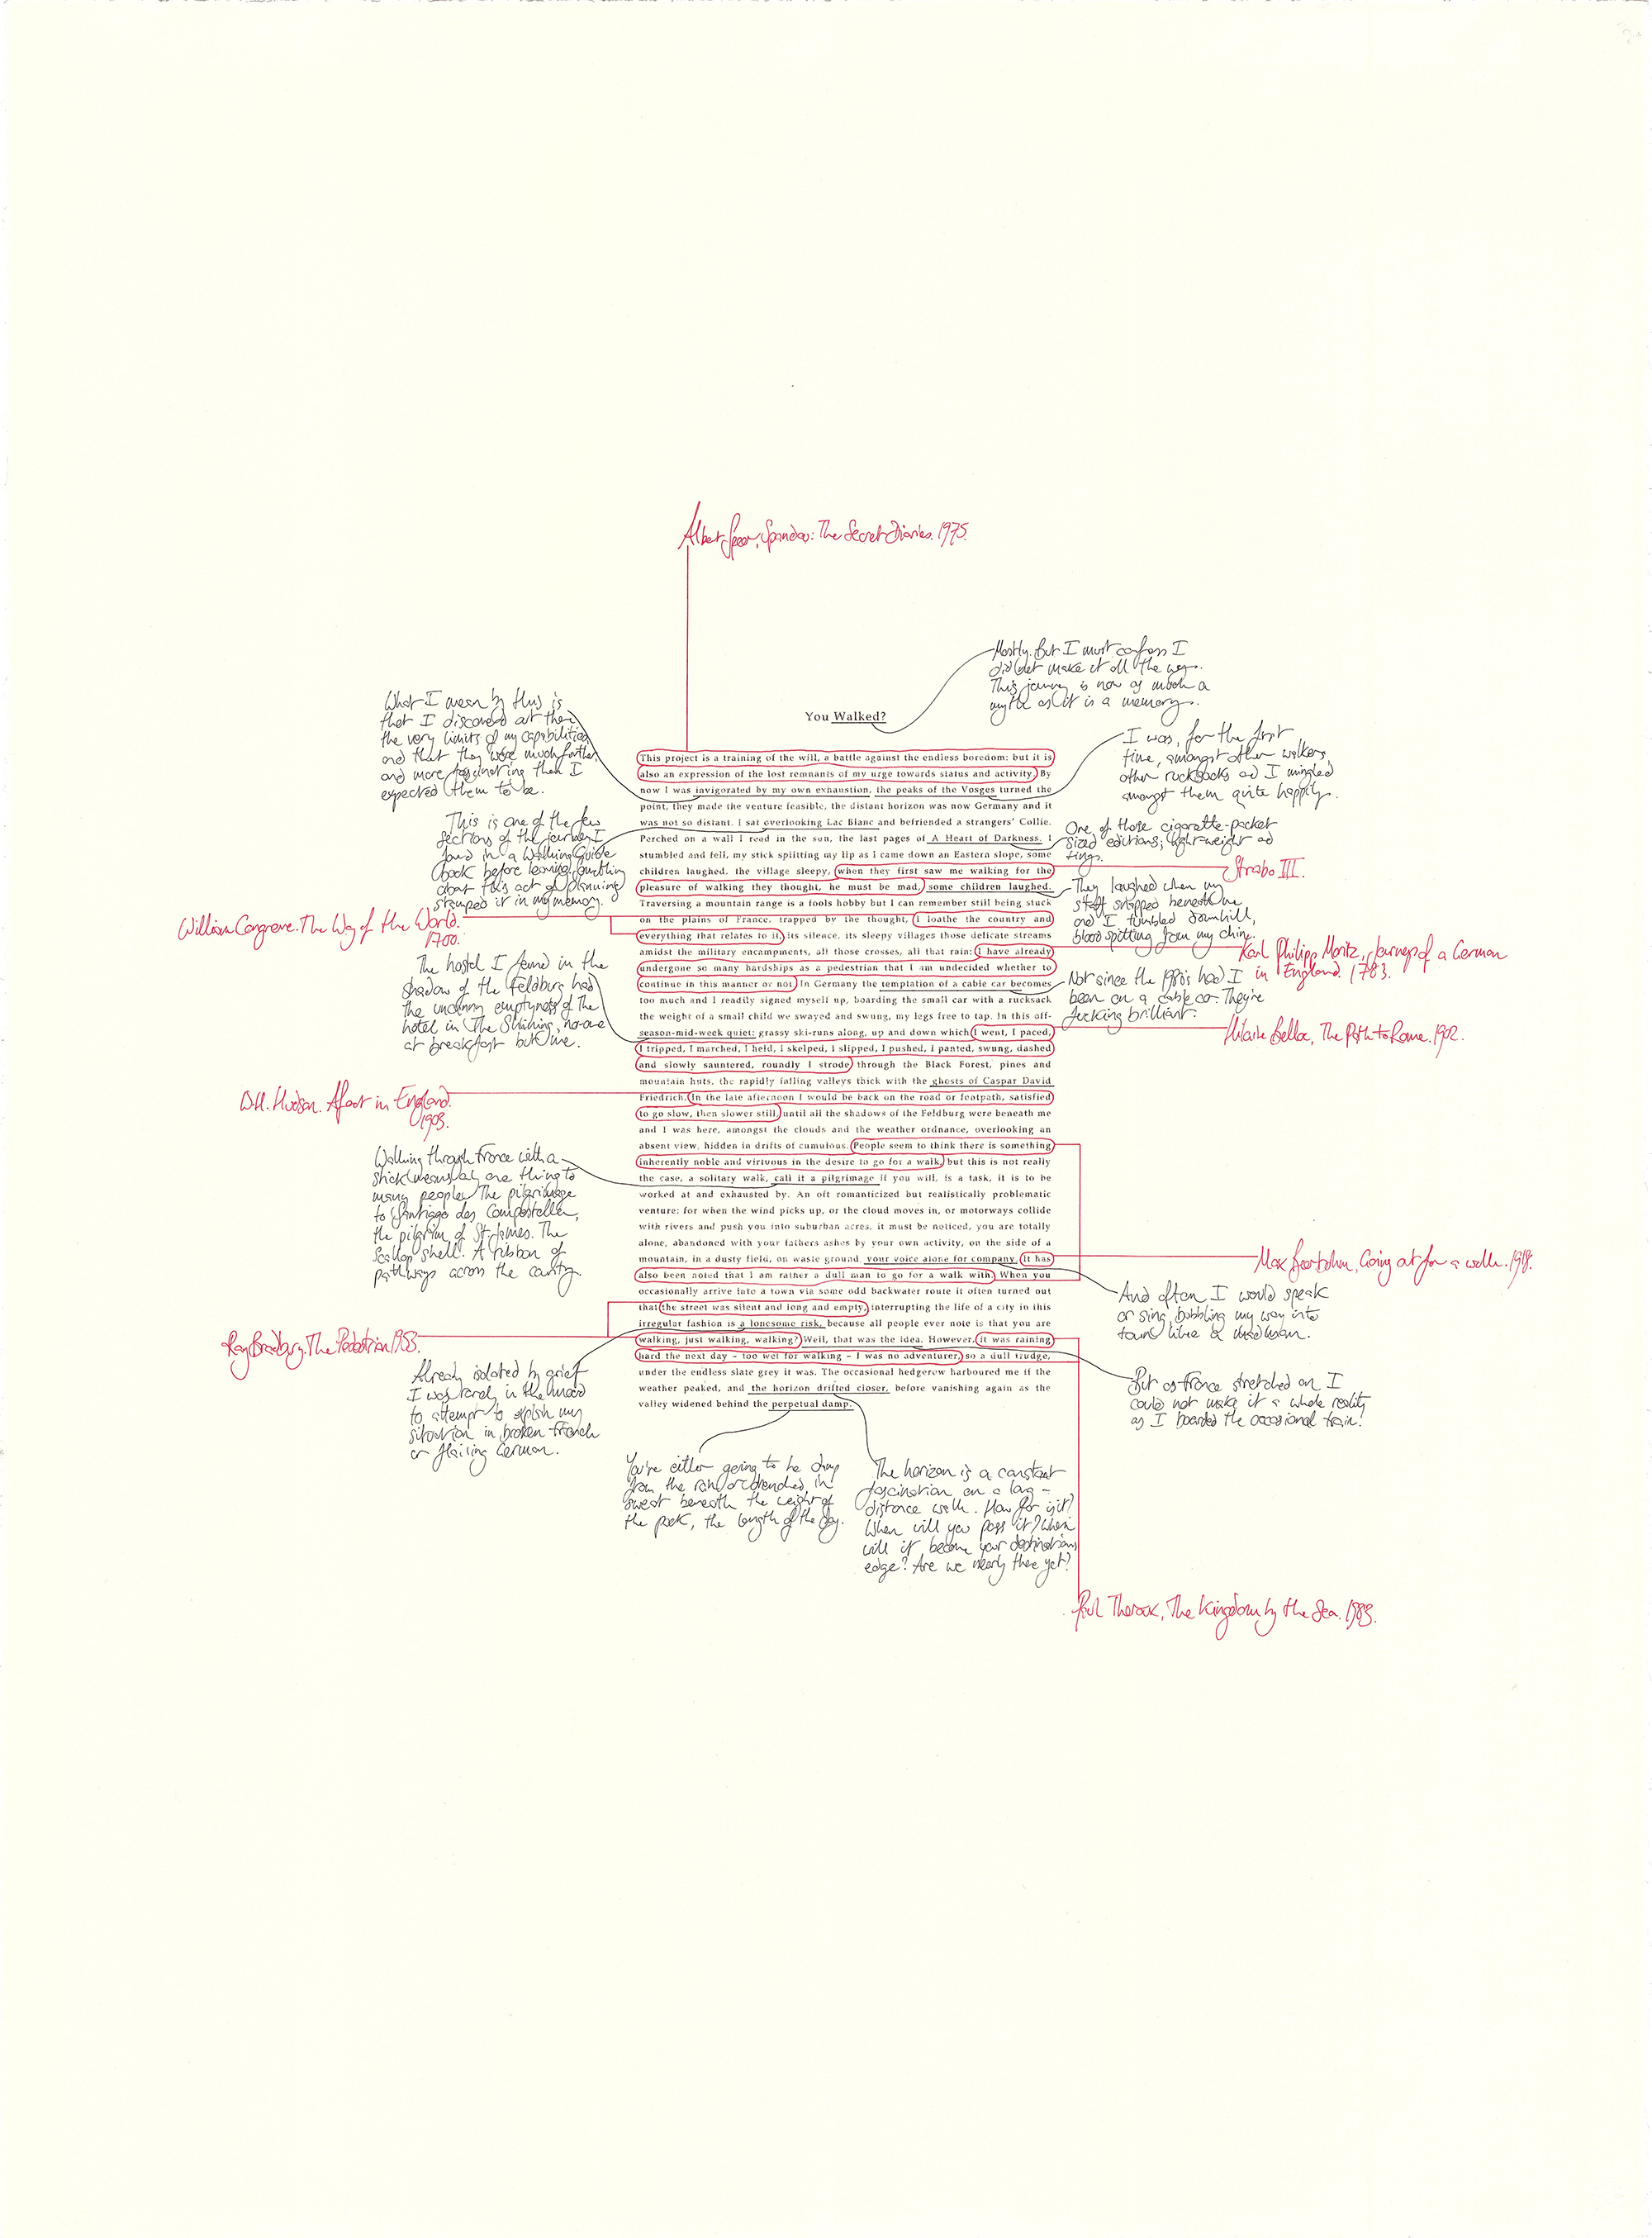 Albert Speer, Spandau: The Secret Diaries. 1975.
Mostly. But I must confess I
did not make it all the way.
This journey is now as much a
myth as it is a memory.
You Walked?
What I mean by this is
that I discovered out there
the very limits of my capabilities
and that they were much further
and more fascinating than I
expected them to be.
I was, for the first
time, amongst other walkers,
other rucksacks and I mingled
amongst them quite happily.
This project is a training of the will, a battle against the endless boredom; but it is
also an expression of the lost remnants of my urge towards status and activity. By
now I was invigorated by my own exhaustion, the peaks of the Vosges turned the
point, they made the venture feasible, the distant horizon was now Germany and it
was not so distant. I sat overlooking Lac Blanc and befriended a strangers' Collie.
Perched on a wall I read in the sun, the last pages of A Heart of Darkness. I
stumbled and fell, my stick splitting my lip as I came down an Eastern slope, some
children laughed, the village sleepy, when they first saw me walking for the
pleasure of walking they thought, he must be mad, some children laughed.
Traversing a mountain range is a fools hobby but I can remember still being stuck
on the plains of France, trapped by the thought, I loathe the country and
everything that relates to it, its silence, its sleepy villages those delicate streams
amidst the military encampments, all those crosses, all that rain; I have already
undergone so many hardships as a pedestrian that I am undecided whether to
continue in this manner or not. In Germany the temptation of a cable car becomes
too much and I readily signed myself up, boarding the small car with a rucksack
the weight of a small child we swayed and swung, my legs free to tap. In this off-
season-mid-week quiet; grassy ski-runs along, up and down which I went, I paced,
I tripped, I marched, I held, I skelped, I slipped, I pushed, I panted, swung, dashed
and slowly sauntered, roundly I strode through the Black Forest, pines and
mountain huts, the rapidly falling valleys thick with the ghosts of Caspar David
Friedrich. In the late afternoon I would be back on the road or footpath, satisfied
to go slow, then slower still, until all the shadows of the Feldburg were beneath me
and I was here, amongst the clouds and the weather ordnance, overlooking an
absent view, hidden in drifts of cumulous. People seem to think there is something
inherently noble and virtuous in the desire to go for a walk, but this is not really
the case, a solitary walk, call it a pilgrimage if you will, is a task, it is to be
worked at and exhausted by. An oft romanticized but realistically problematic
venture: for when the wind picks up, or the cloud moves in, or motorways collide
with rivers and push you into suburban acres, it must be noticed, you are totally
alone, abandoned with your fathers ashes by your own activity, on the side of a
mountain, in a dusty field, on waste ground, your voice alone for company. It has
also been noted that I am rather a dull man to go for a walk with. When you
occasionally arrive into a town via some odd backwater route it often turned out
that the street was silent and long and empty, interrupting the life of a city in this
irregular fashion is a lonesome risk, because all people ever note is that you are
walking, just walking, walking? Well, that was the idea. However, it was raining
hard the next day – too wet for walking – I was no adventurer, so a dull trudge,
under the endless slate grey it was. The occasional hedgerow harboured me if the
weather peaked, and the horizon drifted closer, before vanishing again as the
valley widened behind the perpetual damp.
This is one of the few
sections of the journey I
found in a Walking Guide
book before leaving, fumbling
about this act of planning
stamped it in my memory.
One of those cigarette-packet
sized editions; light-weight and
tiny.
Strabo III.
They laughed when my
staff snapped beneath me
and I tumbled downhill,
blood spitting from my chin.
William Congreve. The Way of the World.
1700.
Karl Philipp Moritz, Journeys of a German
in England. 1783.
The hostel I found in the
shadow of the Feldburg had
the uncanny emptyness of the
hotel in The Shining, no-one
at breakfast but me.
Not since the 1980s had I
been on a cable car. They're
fucking brilliant.
Hilaire Belloc, The Path to Rome. 1902.
W.H. Hudson. Afoot in England.
1903.
Walking through France with a
stick means only one thing to
many people. The pilgrimage
to Santiago des Compostella,
the pilgrim of St. James. The
Scallop shell. A ribbon of
pathways across the country.
Max Beerbohm, Going out for a walk. 1918.
And often I would speak
or sing, babbling my way into
town like a madman.
Ray Bradbury. The Pedestrian 1953.
Already isolated by grief
I was rarely in the mood
to attempt to explain my
situation in broken French
or flailing German.
But as France stretched on I
could not make it a whole reality
as I boarded the occasional train!
You're either going to be damp
from the rain or drenched in
sweat beneath the weight of
the pack, the length of the day.
The horizon is a constant
fascination on a long-
distance walk. How far is it?
When will you pass it? When
will it become your destinations
edge? Are we nearly there yet?
Paul Theroux, The Kingdom by the Sea. 1983.